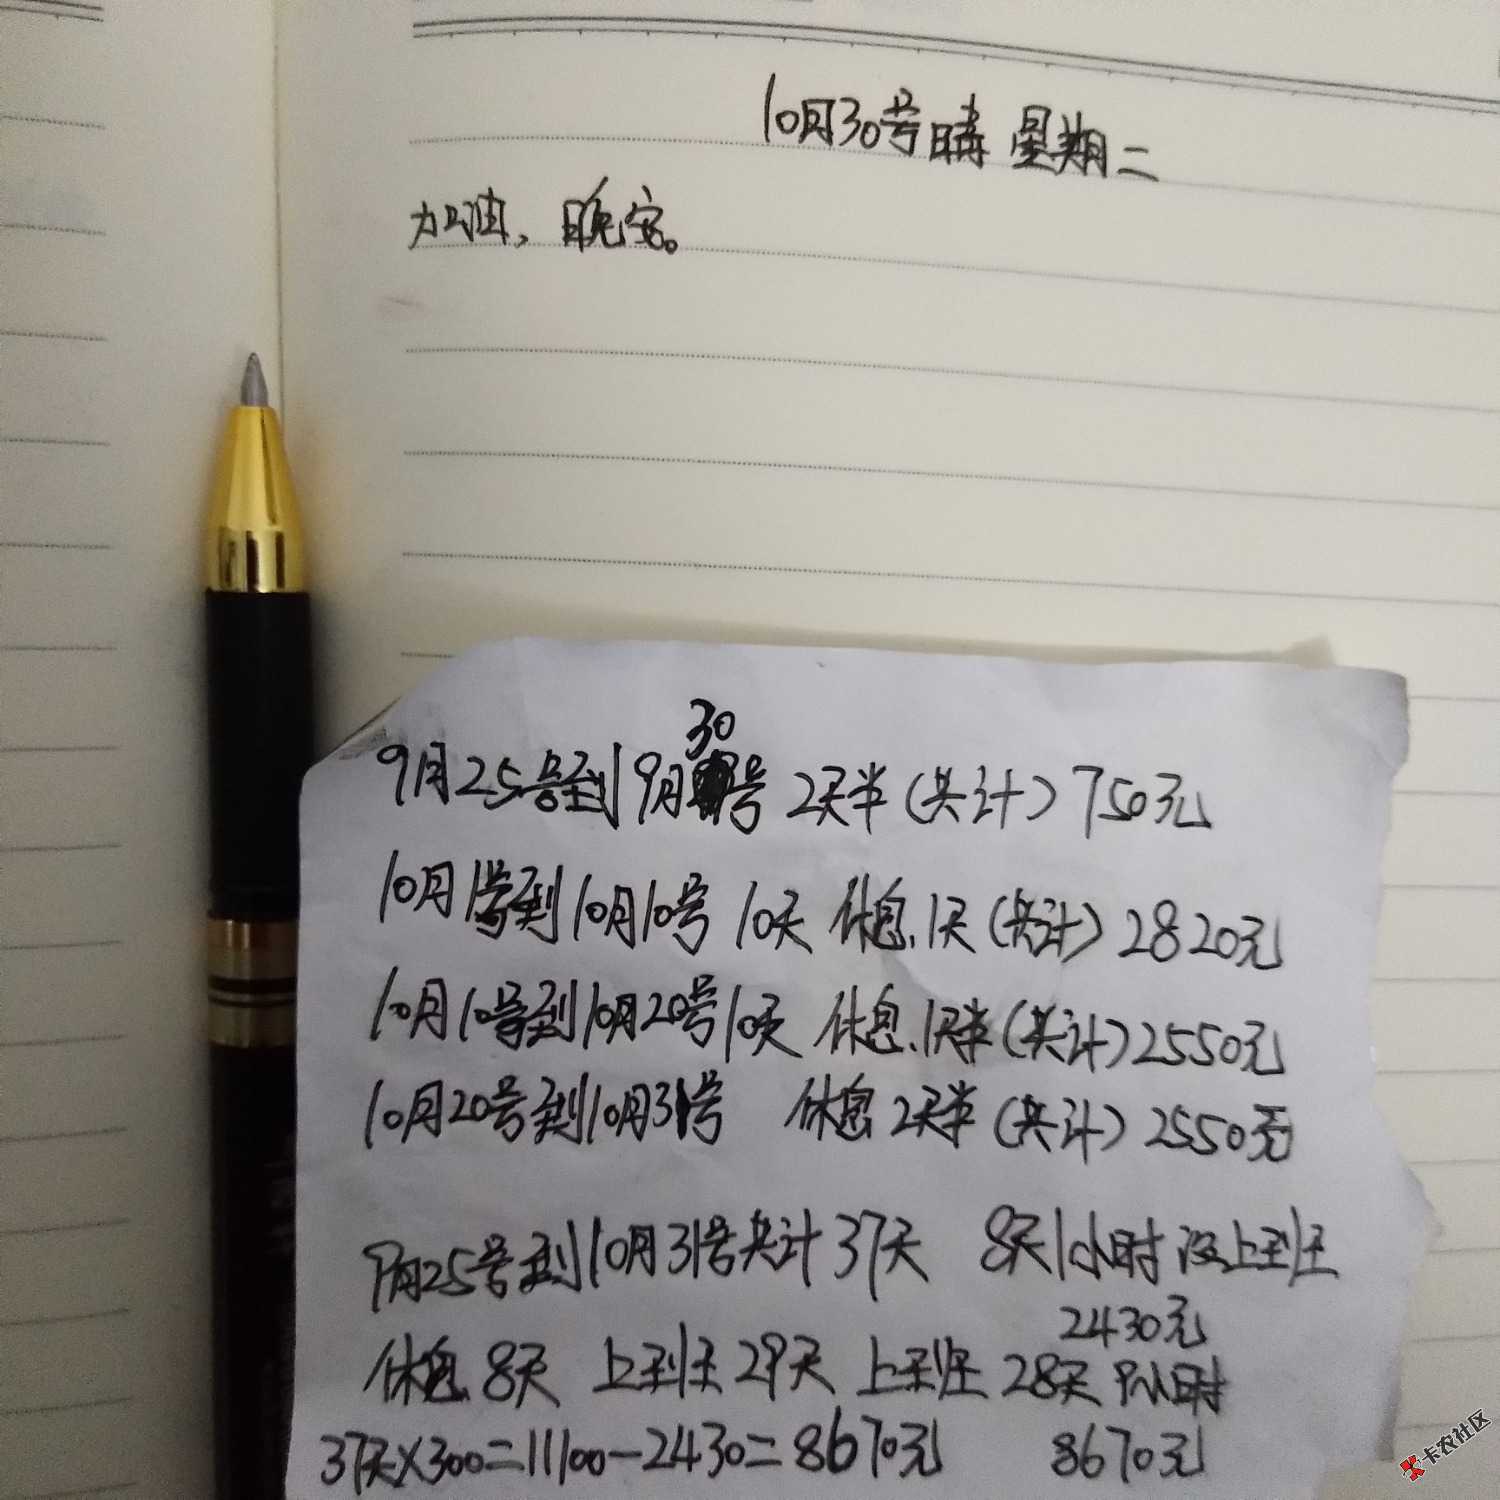 10月30号晴 星期二
加油,晚安。
30
9月25号到9月号 2天半(共计)750元
10月1号到10月10号 10天 休息.1天(共计)2820元
10月10号到10月20号10天 休息.1天半(共计)2550元
10月20号到10月31号 休息2天半(共计)2550元
9月25号到10月31号共计37天 8天1小时没上到班
2430元
休息8天 上到班29天 上到班28天9小时
37天×300=11100-2430=8670元 8670元
卡农社区